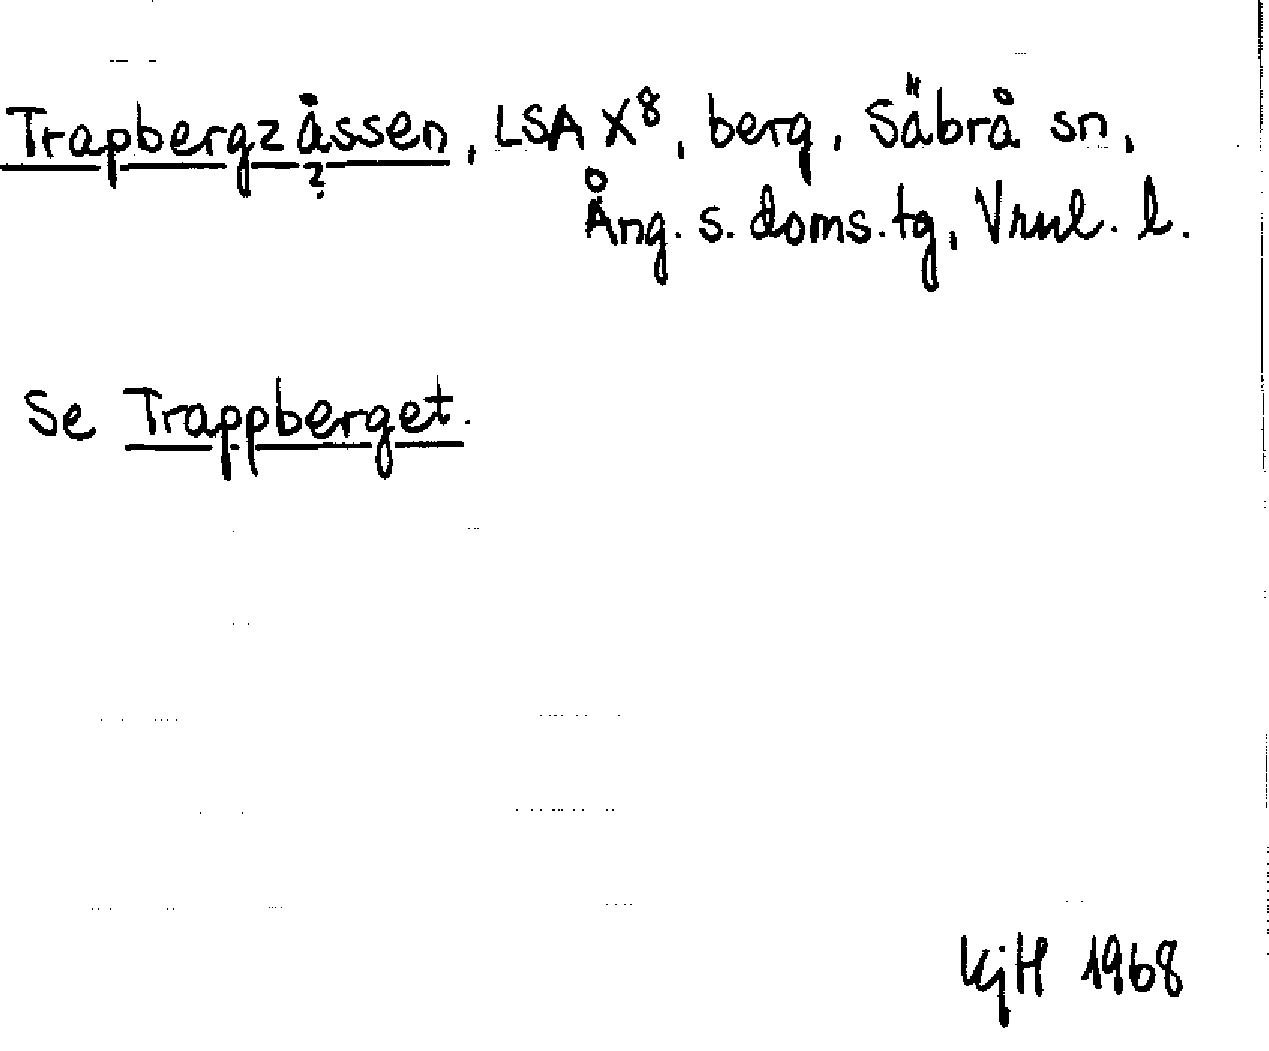 Trapbergzåssen, LSA X⁸, berg, Säbrå sn,
?
Ång. s. doms. tg, Vrnl. l.
Se Trappberget.
KjH 1968